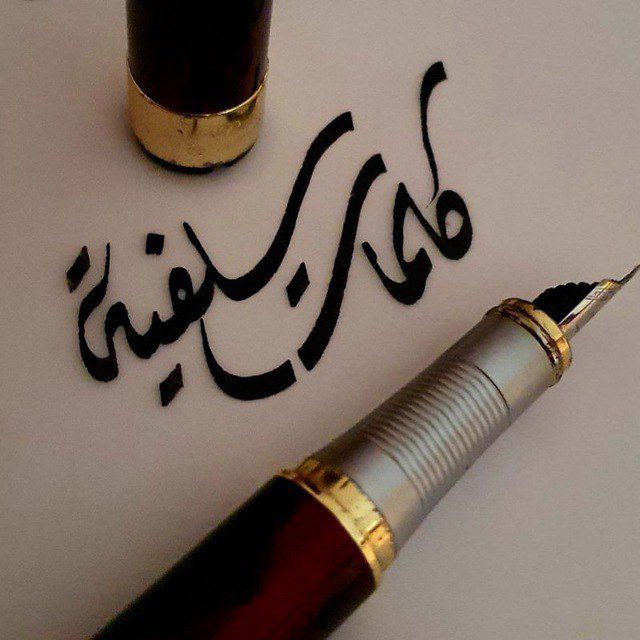 كلمات سلفية